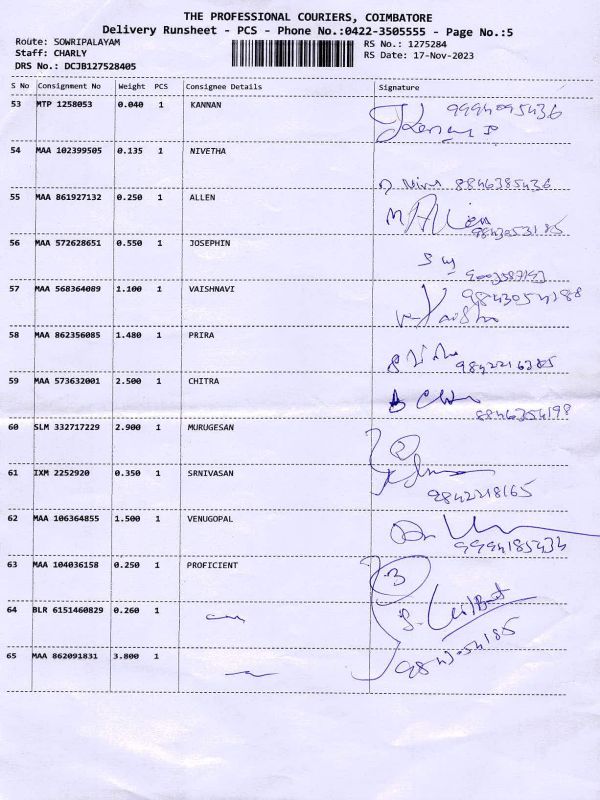 THE PROFESSIONAL COURIERS, COIMBATORE
Delivery Runsheet - PCS - Phone No.:0422-3505555 - Page No.:5
Route: SOWRIPALAYAM
RS No.: 1275284
Staff: CHARLY
RS Date: 17-Nov-2023
DRS No.: DCJB127528405
S No Consignment No Weight PCS Consignee Details Signature
53 MTP 1258053 0.040 1 KANNAN 9994095436
54 MAA 102399505 0.135 1 NIVETHA 8846385436
55 MAA 861927132 0.250 1 ALLEN 9843053185
56 MAA 572628651 0.550 1 JOSEPHIN
57 MAA 568364089 1.100 1 VAISHNAVI 9843054188
58 MAA 862356085 1.480 1 PRIRA
59 MAA 573632001 2.500 1 CHITRA 8846354198
60 SLM 332717229 2.900 1 MURUGESAN 2
61 IXM 2252920 0.350 1 SRNIVASAN 9842218165
62 MAA 106364855 1.500 1 VENUGOPAL 9994185434
63 MAA 104036158 0.250 1 PROFICIENT 3
64 BLR 6151460829 0.260 1
65 MAA 862091831 3.800 1